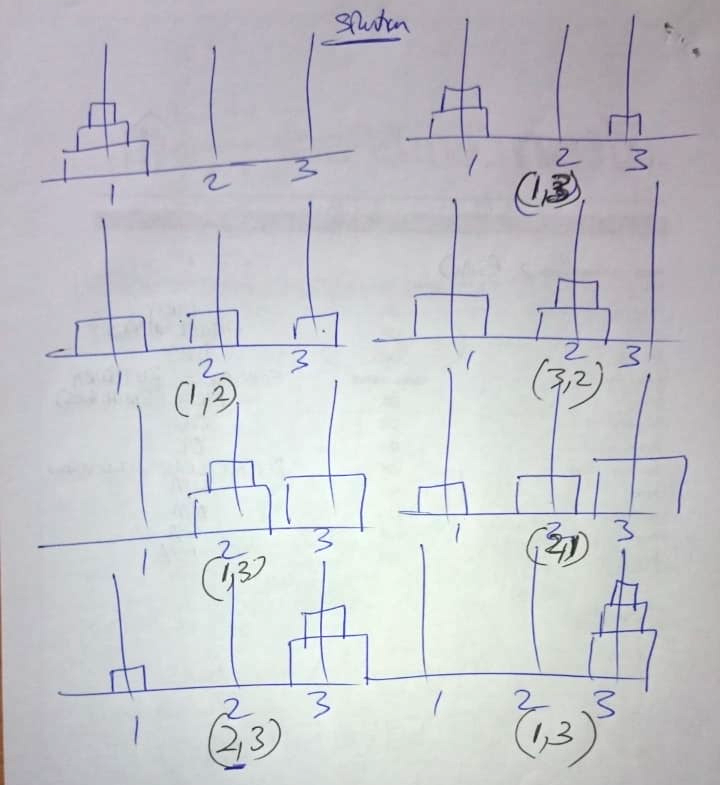 Solution
1 2 3
1 2 3
(1,3)
1 2 3
(1,2)
1 2 3
(3,2)
1 2 3
(1,3)
1 2 3
(2,1)
1 2 3
(2,3)
1 2 3
(1,3)